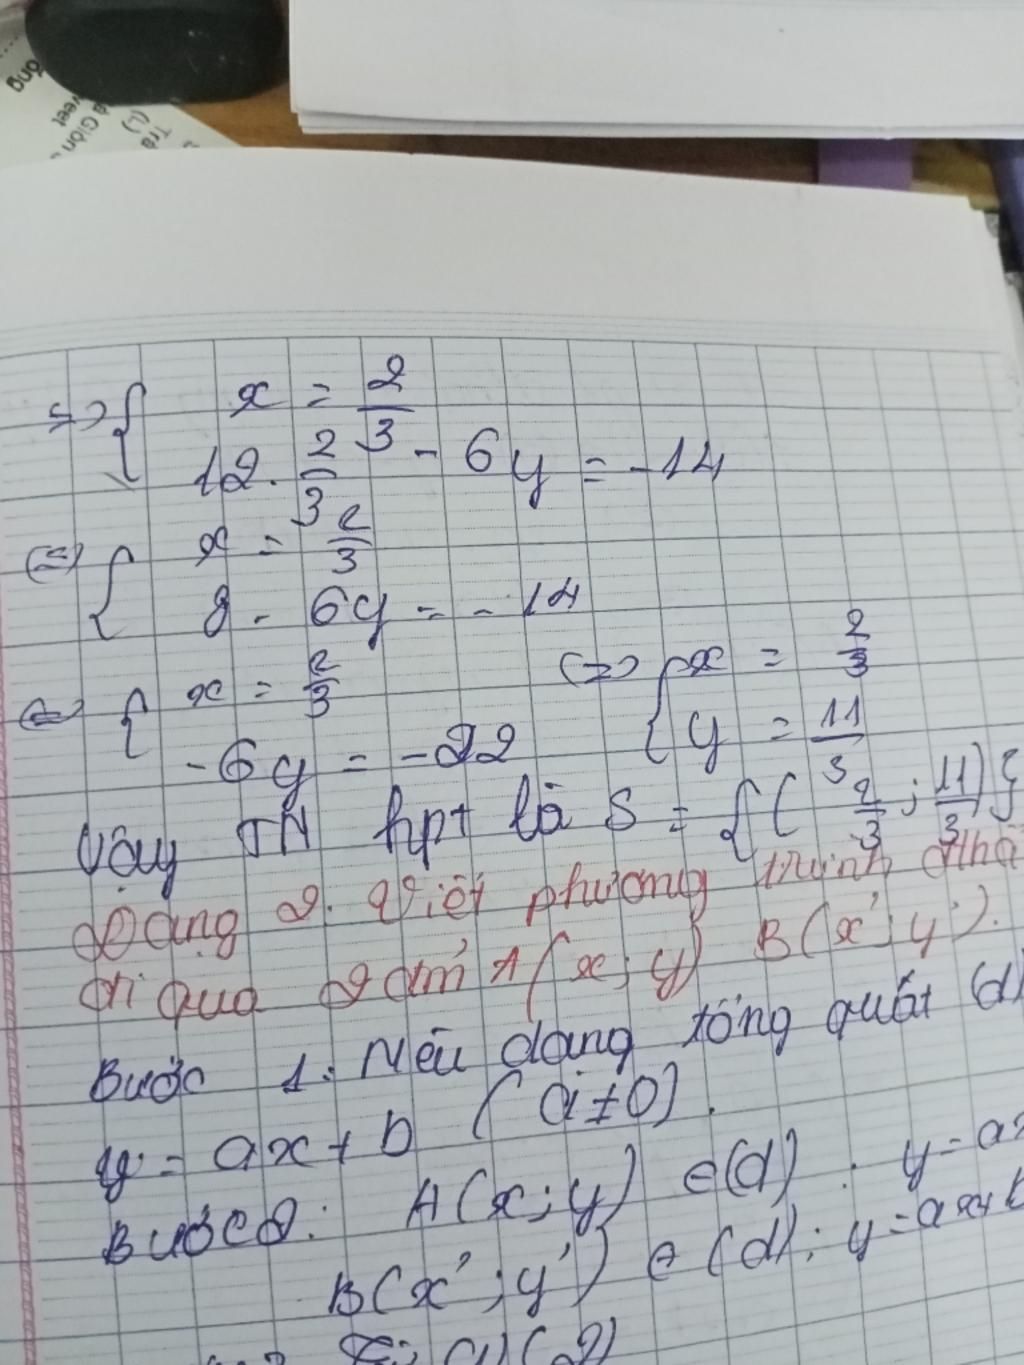 <=> { x = 2/3
12. 2/3 - 6y = -14
<=> { x = 2/3
8 - 6y = - 14
<=> { x = 2/3
-6y = -22
<=> { x = 2/3
y = 11/3
Vậy TN hpt là S = {( 2/3 ; 11/3 )}
Dạng 2. Viết phương trình
đi qua 2 điểm A(x; y) B(x'; y').
Bước 1. Nêu dạng tổng quát (d)
y = ax + b ( a ≠ 0).
Bước 2: A(x; y) ∈ (d) : y = ax
B(x'; y') ∈ (d); y = ax + b
(2)